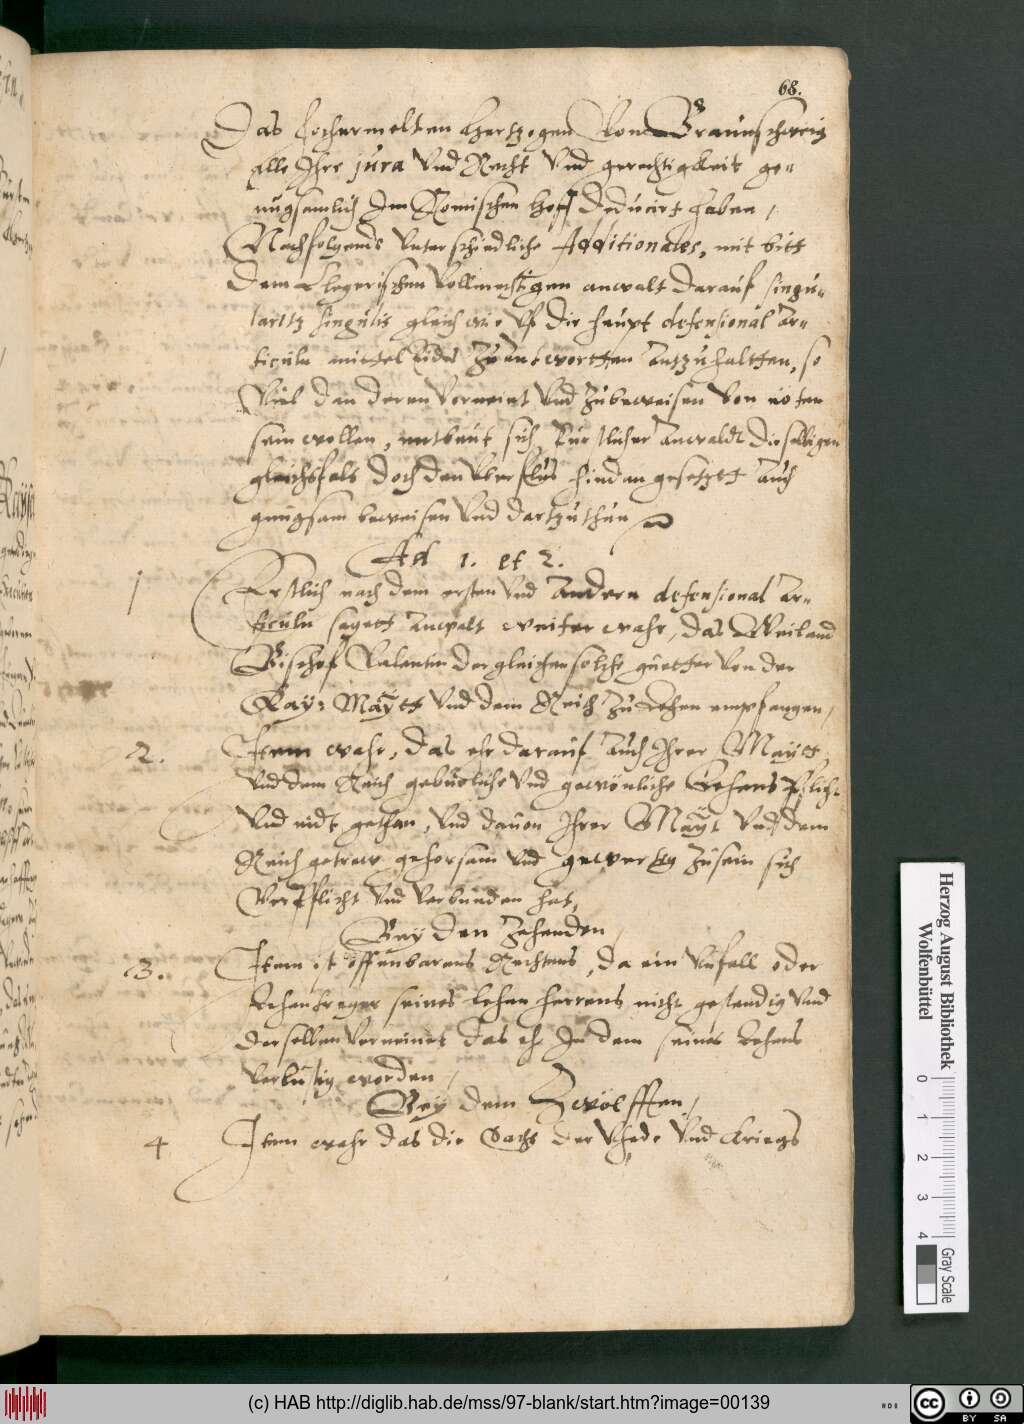 68.
Das hochermelten Hertzogen Von Braunschweig
alle Ihre jura Vnd Recht Vnd gerechtigkeit ge-
nugsamlich Im Romischen Hoff deducirt haben,
Nachfolgends Vnterschiedliche Additionales, mit bitt
dem Clegerischen Vollmechtigen anwalt darauf singu-
laritz singulis gleich wie vf die haupt defensional Ar-
ticuln mittel Eides Zu antwortten antzuhaltten, so
Viel dan deren Verneint Vnd Zubeweisen Von nöten
sein wollen, erbeut sich Furstlicher Anwaldt dieselbigen
gleichsfals doch den Vberflus hindangesetzt auch
gnugsam beweisen Vnd dartzuthun
Ad 1. et 2.
1 Erstlich nach dem ersten Vnd Andern defensional Ar-
ticuln sagtt Anwalt weiter wahr, das Weiland
Bischof Valentin dergleichen solche guetter Von der
Kay: Maytt Vnd dem Reich Zu Lehen empfangen,
2. Item wahr, das ehr darauf auch Ihrer Maytt
Vnd dem Reich geburliche Vnd gewönliche Lehens Pflicht
Vnd eidt gethan, Vnd dauon Ihrer Mayt Vnd dem
Reich getrew gehorsam Vnd gewertig Zusein sich
Verpflicht Vnd Verbunden hat,
Bey den Zehenden,
3. Item ist offenbarens Rechtens, da ein Vasall oder
Lehentreger seines Lehenherrens nicht gestendig Vnd
derselben Verneinet das ehr In dem seines Lehens
Verlustig worden,
Bey dem Zwölfften,
4 Item wahr das die Sach der Vhede Vnd Kriegs
Herzog August Bibliothek
Wolfenbüttel
0 1 2 3 4
Gray Scale
(c) HAB http://diglib.hab.de/mss/97-blank/start.htm?image=00139
cc BY SA